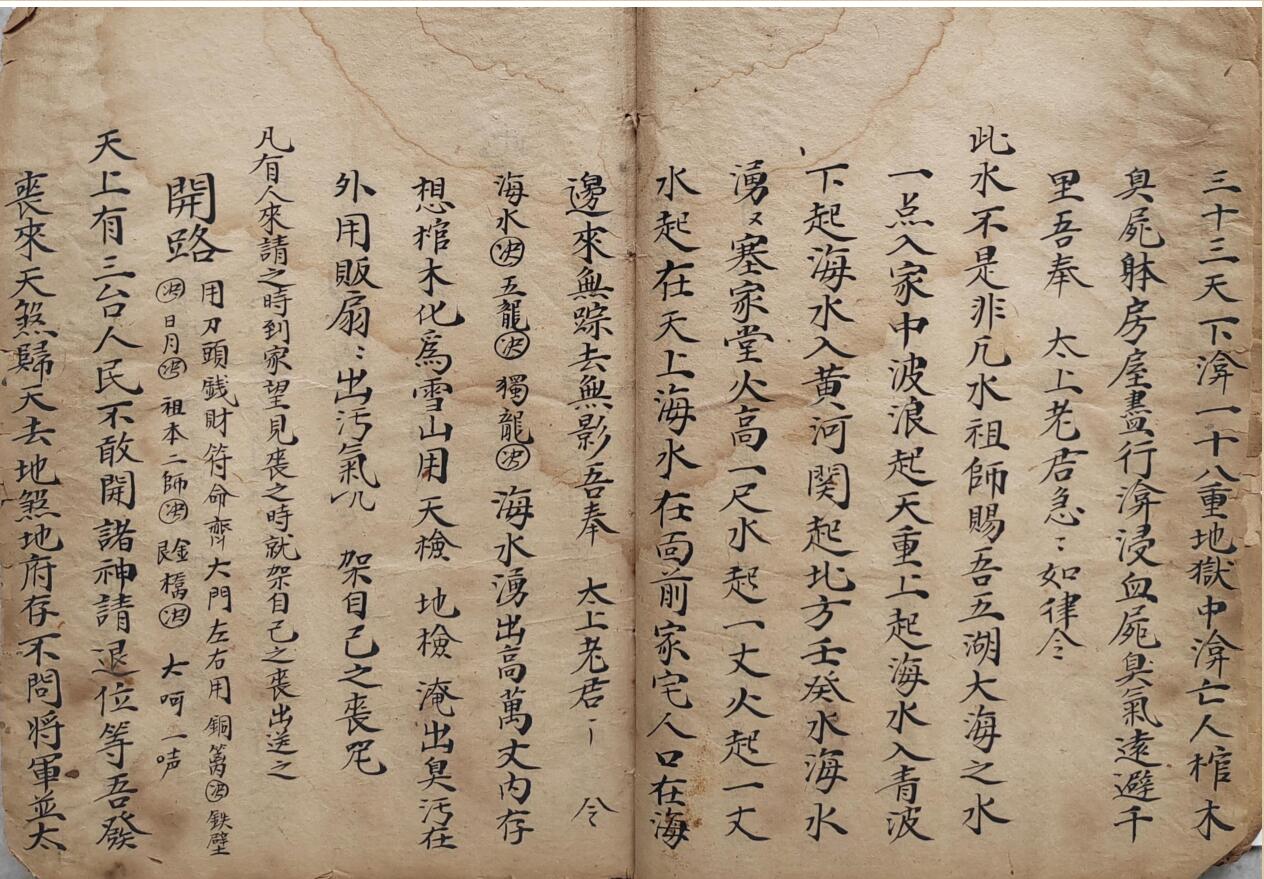 三十三天下渰一十八重地獄中渰亡人棺木
臭屍躰房屋盡行渰浸血屍臭氣遠避千
里吾奉　太上老君急〻如律令
此水不是非凡水祖師賜吾五湖大海之水
一点入家中波浪起天重上起海水入青波
下起海水入黄河関起北方壬癸水海水
湧〻塞家堂火高一尺水起一丈火起一丈
水起在天上海水在面前家宅人口在海
邊來無踪去無影吾奉　太上老君　令
海水決五龍決　獨龍決　海水湧出高萬丈内存
想棺木化爲雪山用　天檢　地檢　淹出臭污在
外用販扇〻出污氣　架自己之喪
凡有人來請之時到家望見喪之時就架自己之喪出送之
開路
用刀頭錢財符命齊大門左右用　銅篱決鉄壁
決日月決　祖本二師決　橋決　大呵一声
天上有三台人民不敢開諸神請退位等吾發
喪來天煞歸天去地煞地府存不問將軍並太